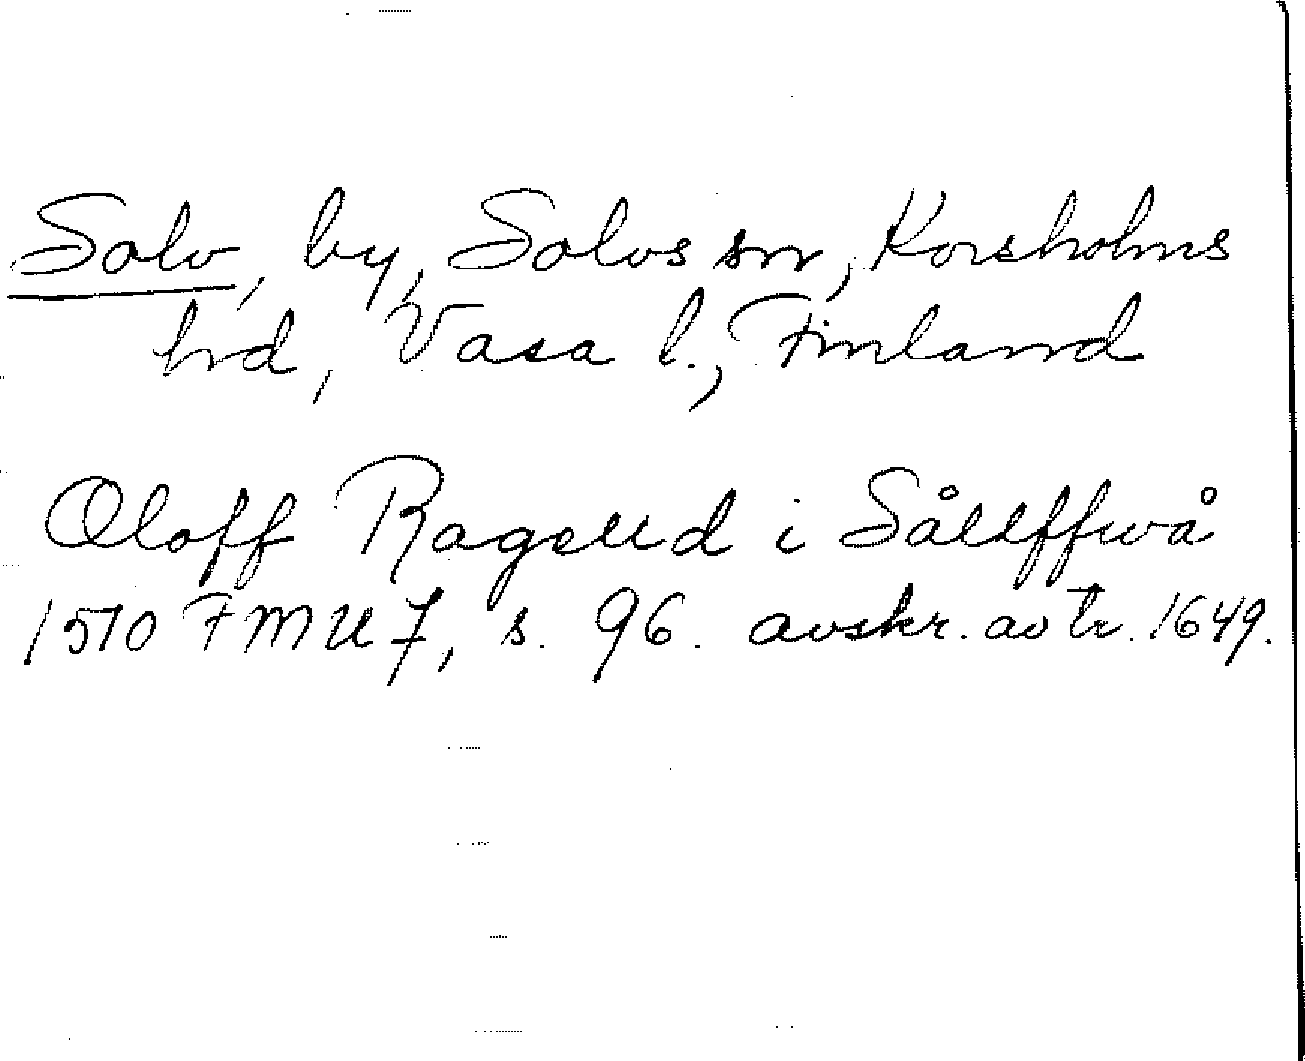 Solv, by, Solvs sn, Korsholms
hd, Vasa l., Finland
Oloff Rageud i Sållffwå
1510 FMU 7, s. 96. avskr. av tr. 1649.